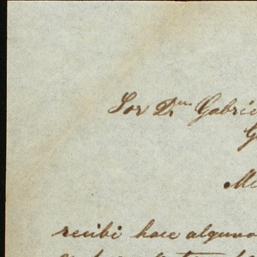 Sor Dn Gabrie
G
Me
recibi hace alguno